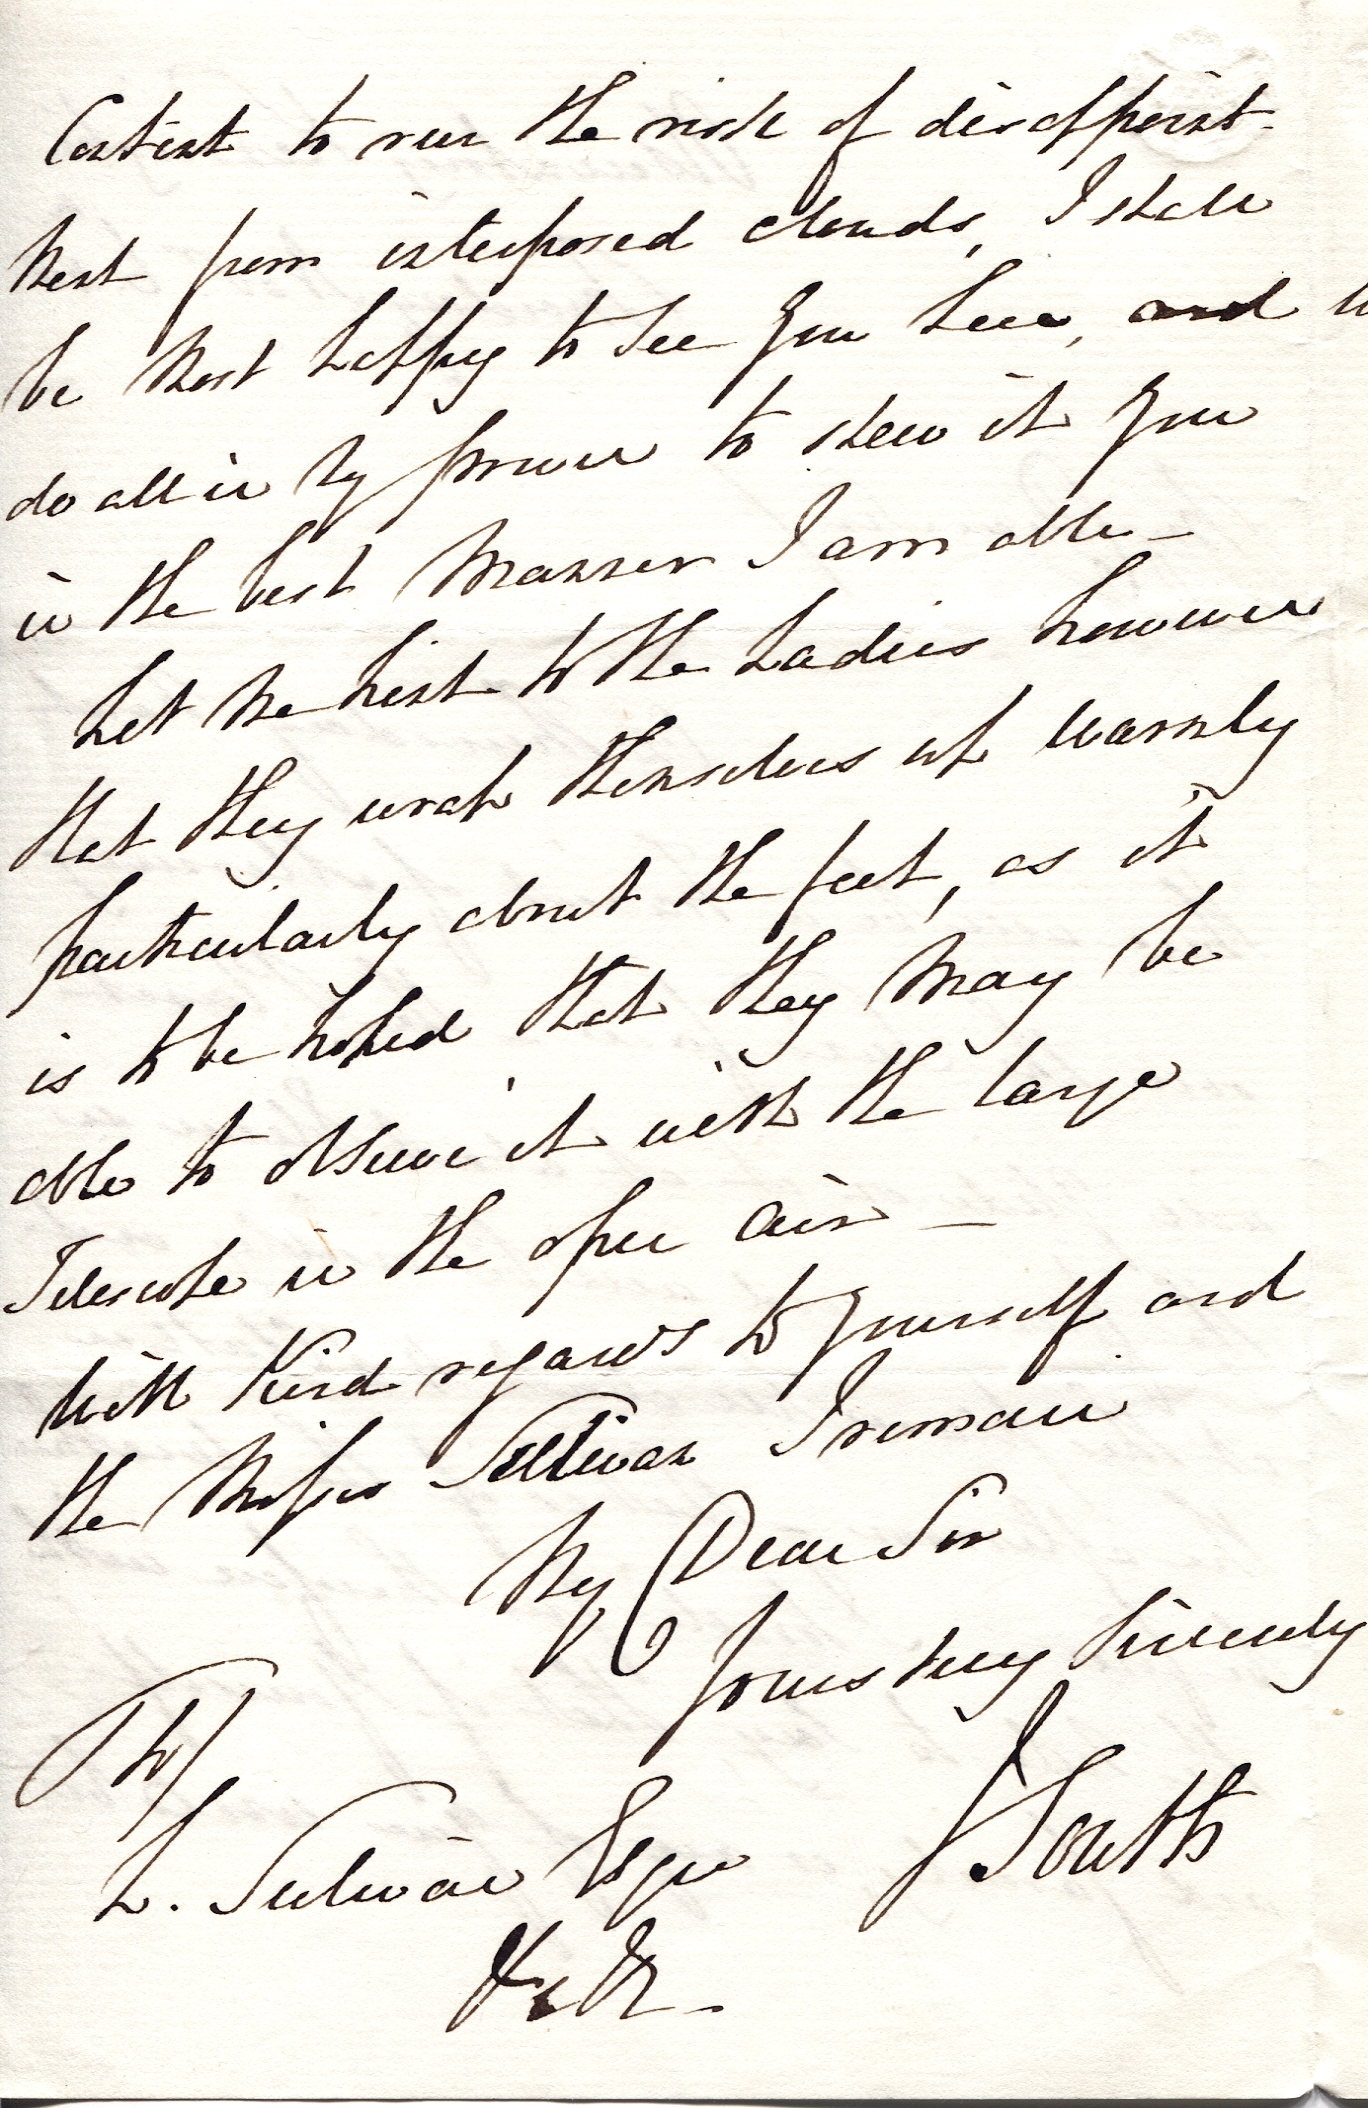 Content to run the risk of disappoint-
ment from interposed clouds, I shall
be most happy to see you here, and
do all in my power to shew it you
in the best manner I am able —
Let me hint to the Ladies however
that they wrap themselves up warmly
particularly about the feet, as it
is to be hoped that they may be
able to observe it with the large
Telescope in the open air —
With kind regards to yourself and
the Misses Sullivan I remain
My Dear Sir
Yours very sincerely
J South
To/
L. Sulivan Esqre
&c &c -